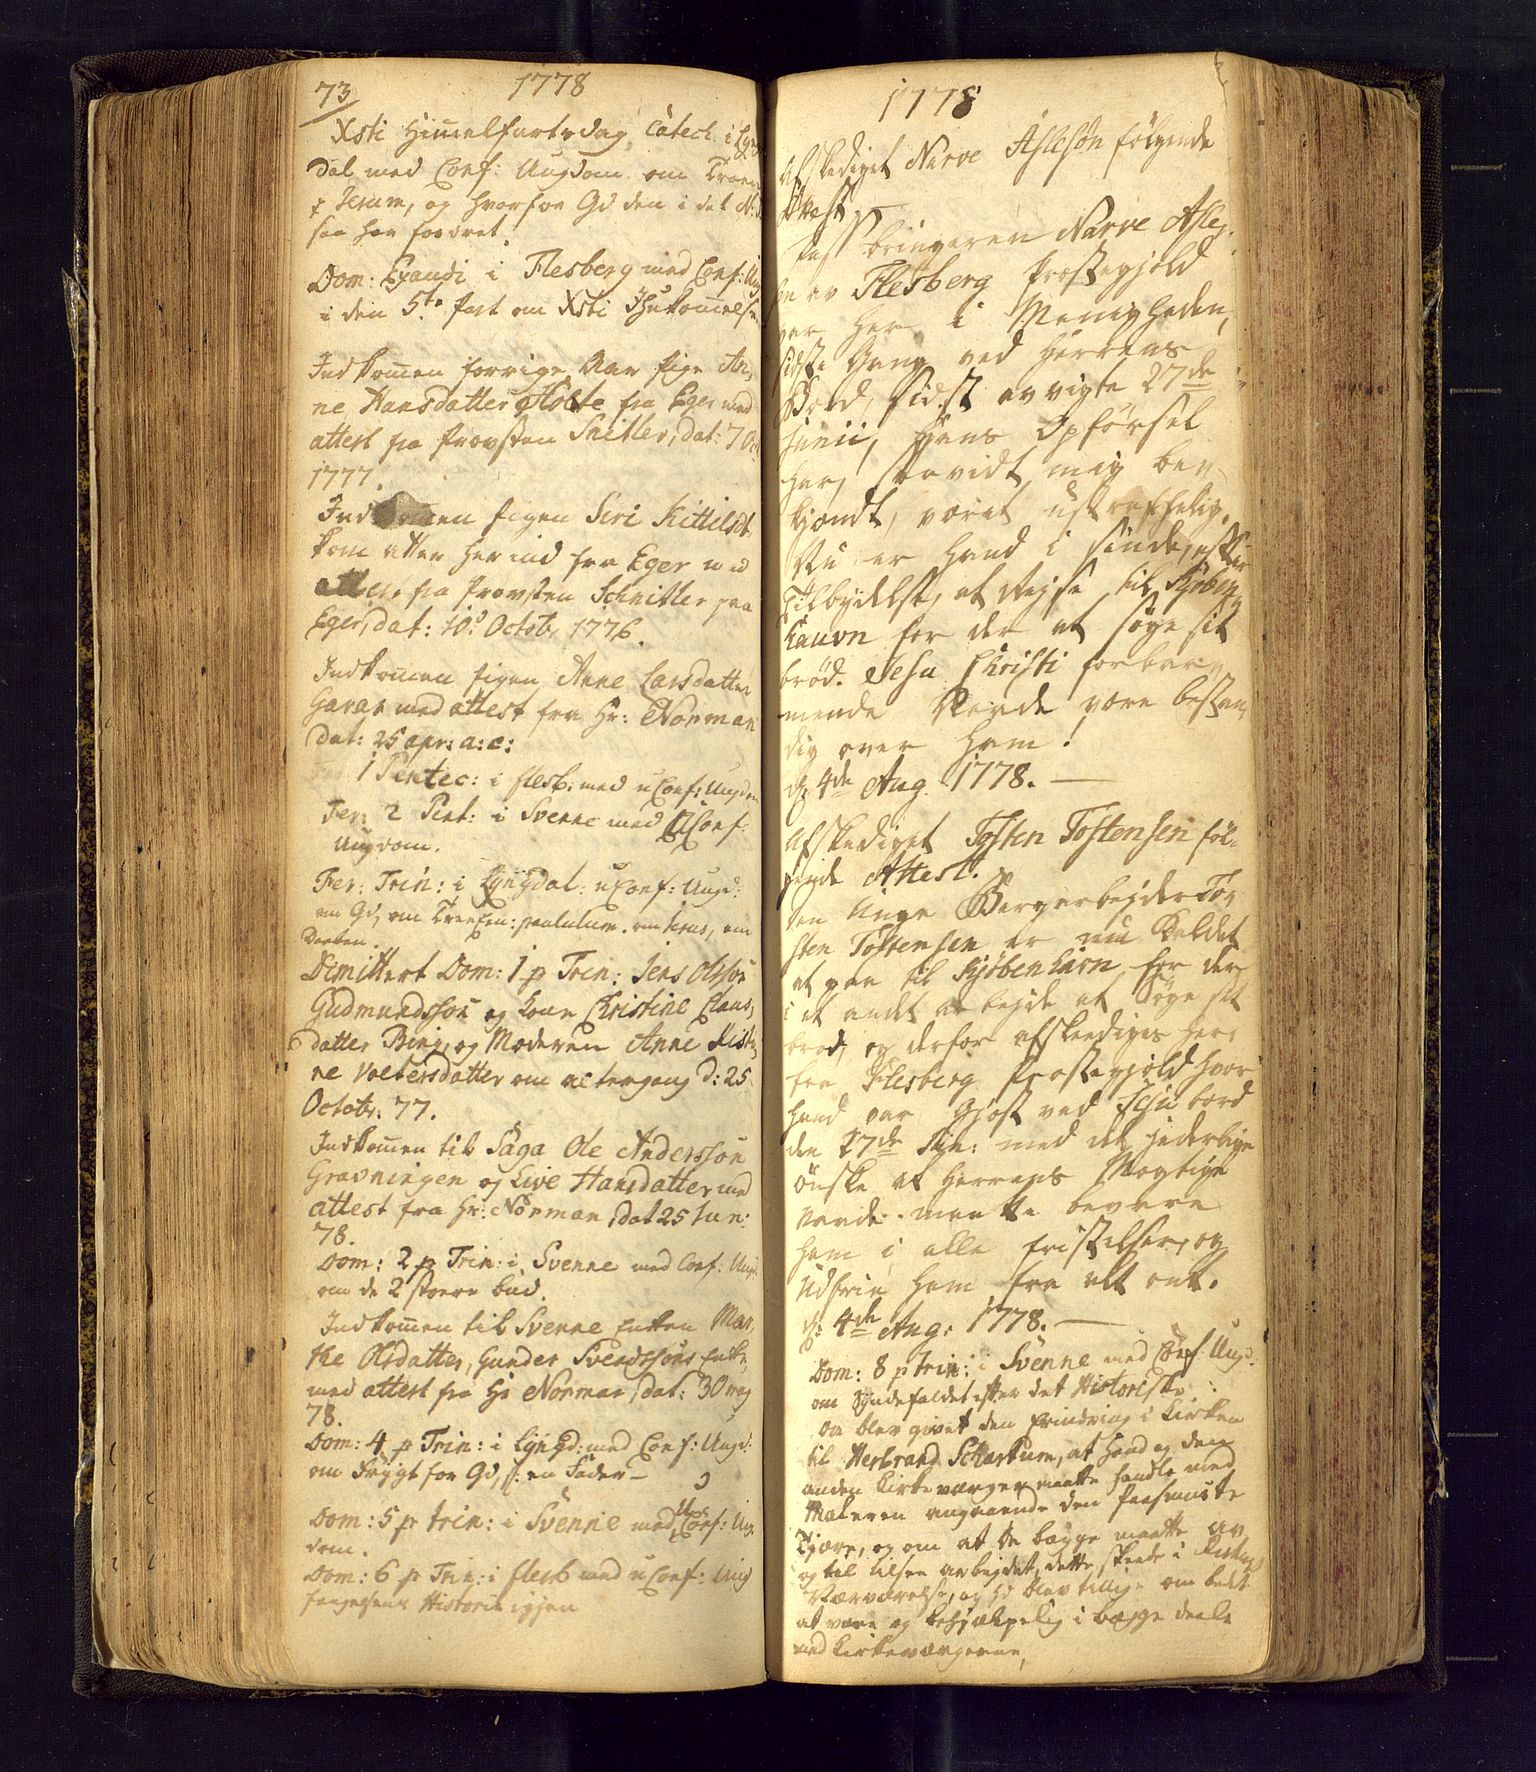 73
1778
Xsti Himelfartsdag, Catech. i Lyng
dal med Conf: Ungdom om Troen
Jesum, og hvorfor Gd den i det N:
saa har fordret.
Dom: Exaudi i Flesberg med Conf: Ung
i den 5te part om Xsti Ihukommelse
Indkommen forrige Aar pige An,
ne Hansdatter Holte fra Eger med
attest fra Provsten Snitler, dat: 7 Oct
1777.
Indkommen pigen Siri Kittilsdt.
kom atter her ind fra Eger med
attest fra Provsten Schnitler paa
Eger, dat: 10de Octobr 1776.
Indkommen pigen Anne Larsdatter
Garaas med attest fra Hr: Norman
dat: 25 apr: a: c:
Fer 1 Pentec: i flesb. med u Conf: Ungdom
Fer: 2 Pent: i Svenne med u Conf:
Ungdom.
Fer: Trin: i Lyngdal: u Conf: Ungd:
om Gd, om Treen: om Jesus, om
Daaben.
Dimittert Dom: 1 p Trin: Jens Olsson
Gudmundsson og kone Christine Claus,
datter Bing, og Moderen Anne Kisti,
ne Voetersdatter om altergang d: 25
Octobr: 77.
Indkommen til Saga Ole Andersson
Gravningen og Live Hansdatter med
attest fra Hr: Norman, dat 25 Jun:
78.
Dom: 2 p Trin: i Svenne med Conf: Ungd.
om de 2 store bud.
Indkommen til Svenne Enken Mar,
the Olsdatter, Gunder Svendssons Enke,
med attest fra Hr Norman, dat: 30 may
78.
Dom: 4 p Trin: i Lyngd: med Conf: Ungd:
om Frygt for Gd, en Fader –
Dom: 5 p trin: i Svenne med Conf: Ung
dom.
Dom: 6 p Trin: i flesb med u Conf: Ung
Historie igjen
1778
Afskediget Narve Asleson følgende
Attest
Pass bringeren Narve Asles,
sen av Flesberg Præstegjeld
var her i Menigheden,
sidste Gang ved Herrens
Bord, sidst avvigte 27de
Junii, hans Opførsel
her, saavidt mig be,
kjendt, været ustraffelig.
Nu er hand i sinde, efter
Tilbydelse, at Rejse til Kjøben,
havn for der at søge sit
brød. Jesu Christi forbarm,
mende Naade være bestan,
dig over ham!
d: 4de Aug. 1778.
Afskediget Tosten Tostensen føl,
gende Attest.
Den Unge Bergarbejder To,
sten Tostensen er nu kaldet
at gaa til Kjøbenhavn for der
i et andet arbejde at søge sit
brød, og derfor afskeediges her
fra Flesberg Præstegjeld hvor
hand var Gjest ved Jesu bord
den 27de Jun: med det hjertelige
ønske at Herrens Mægtige
Naade maatte bevare
ham i alle fristelser, og
udfrie ham fra alt ont.
d: 4de Aug: 1778.
Dom: 8 p trin: i Svenne med Conf. Ungd:
om Syndefaldet efter det Historiske
Da blev givet den Erindring i Kirken
til Herbrand Schartum, at hand og den
anden Kirkeværger maatte handle med
Maleren angaaende den
Tjære, og om at De begge maatte av
og til tilsee arbejdet, dette skeede i
Nærværelse, og hd blev tillige om bedt
at være og behjælpelig i begge deele
med Kirkeværgerne,